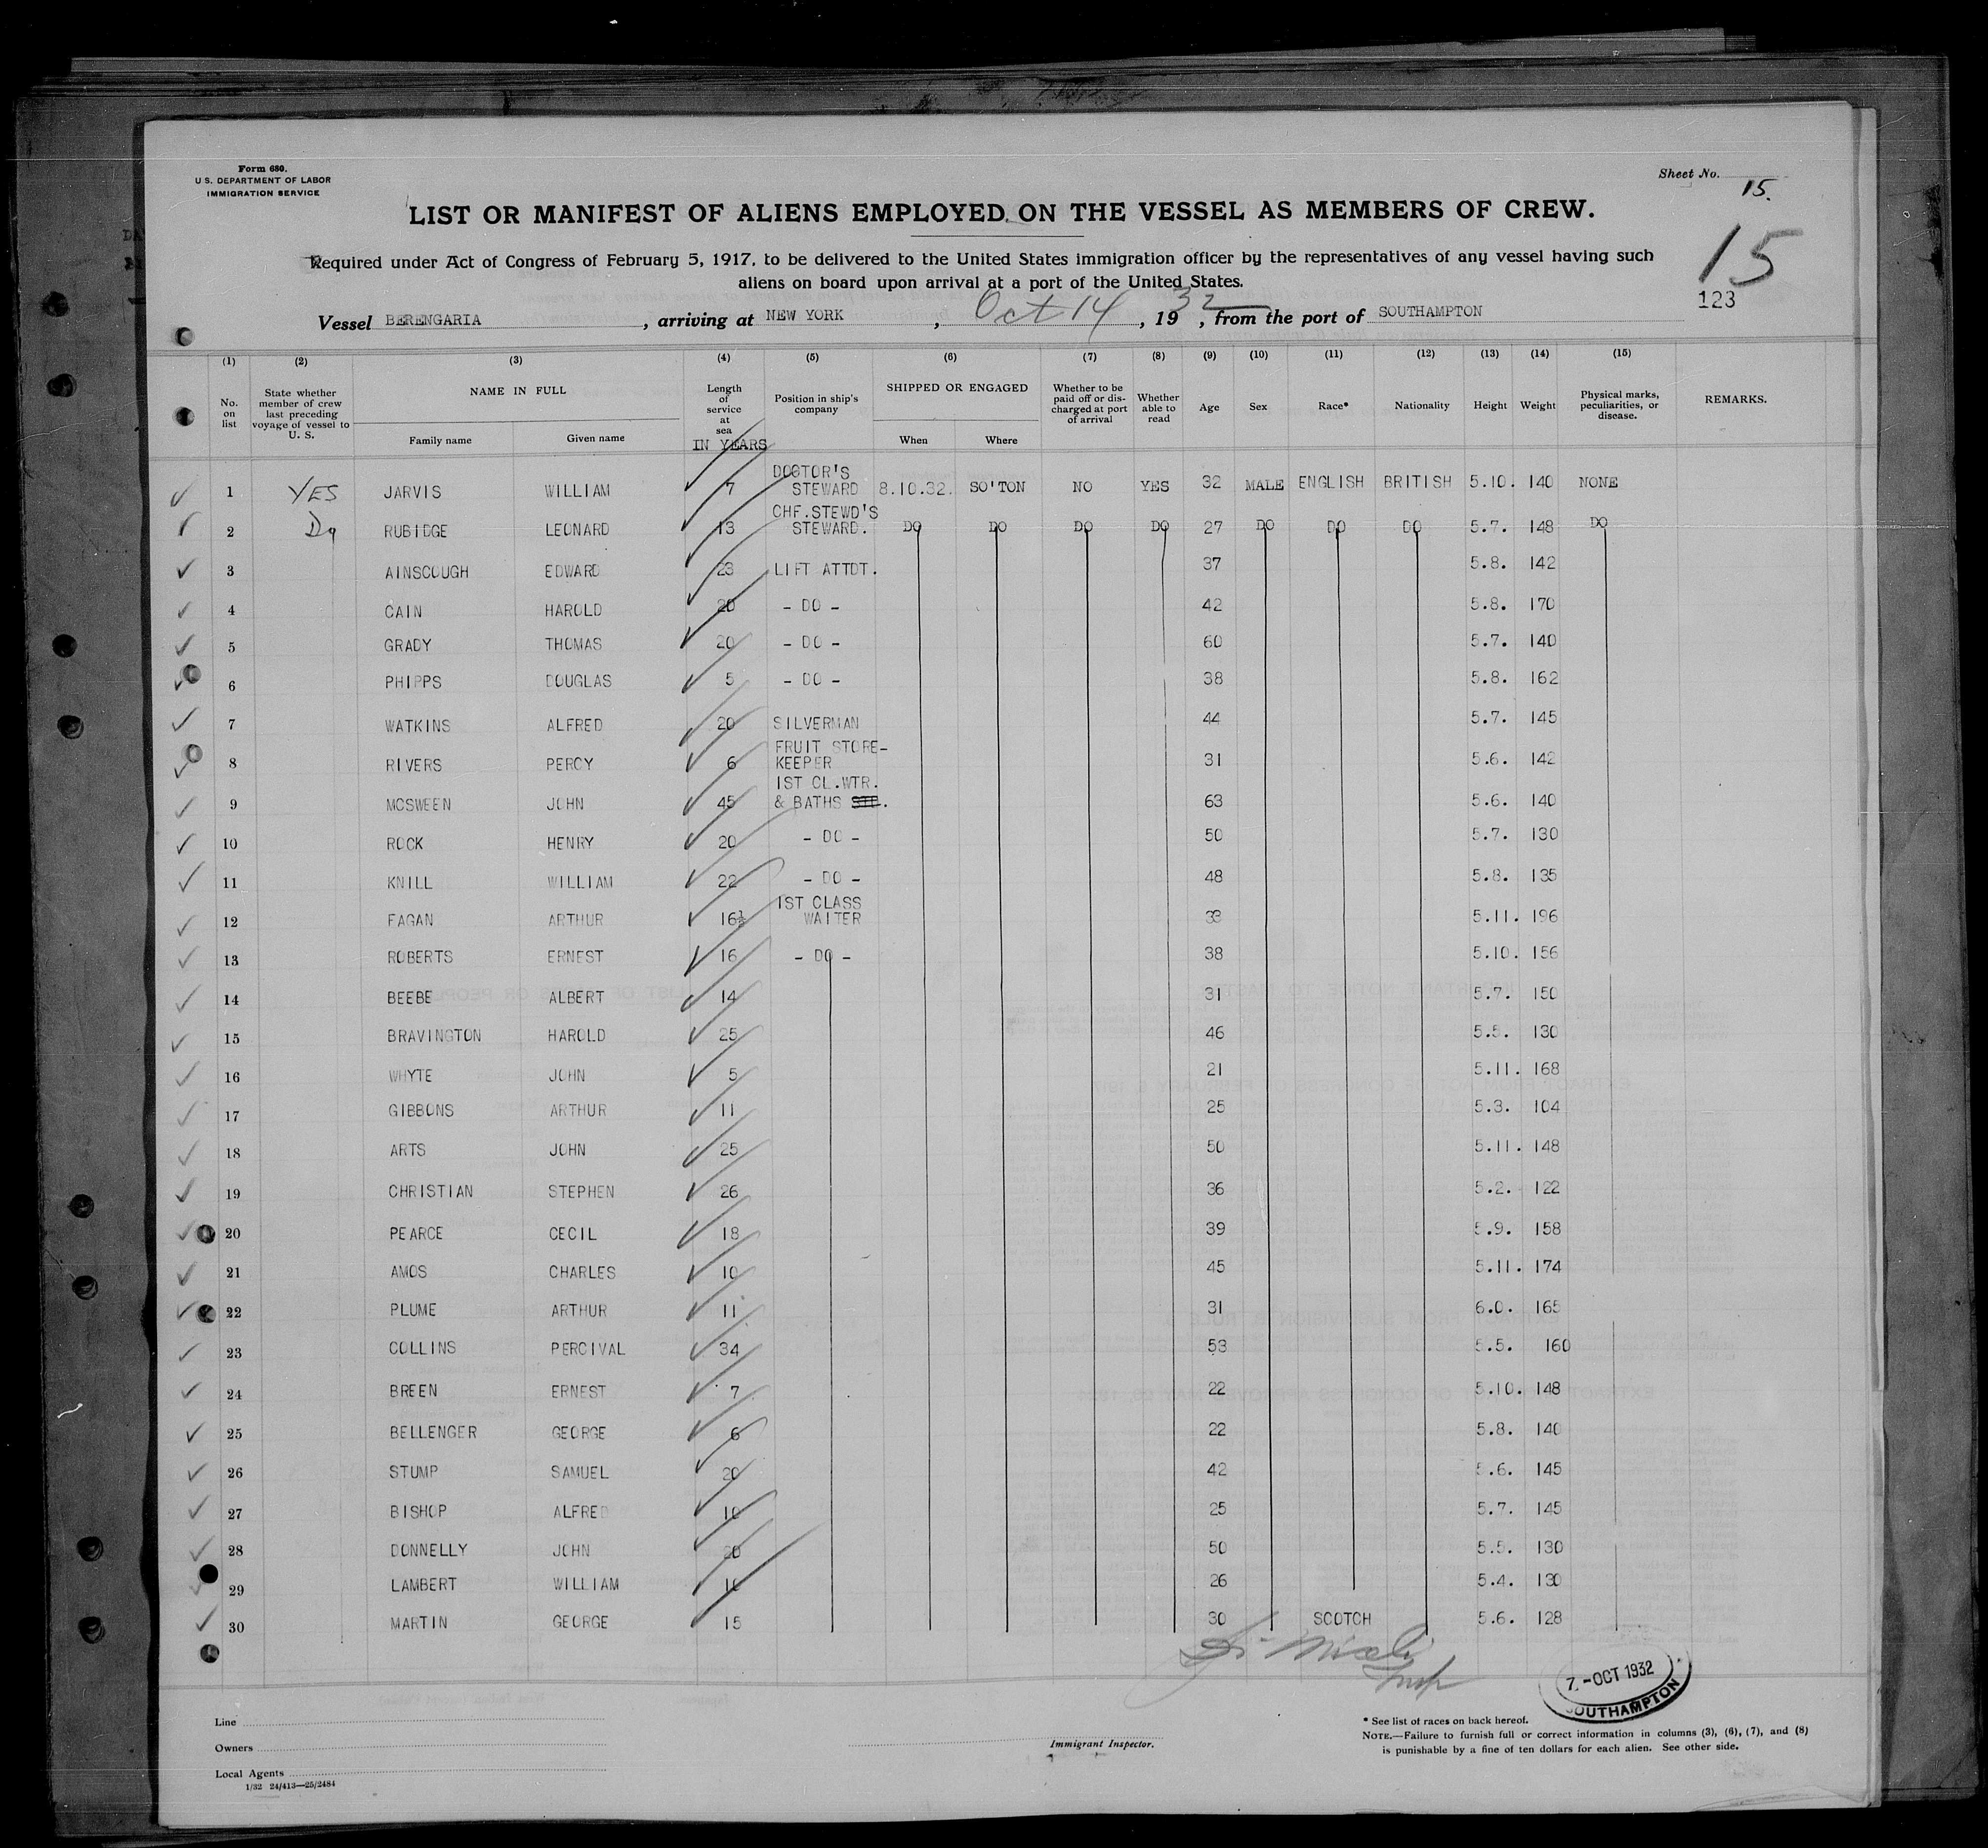 Form 680.
U.S. DEPARTMENT OF LABOR
IMMIGRATION SERVICE
Sheet No. 15.
LIST OR MANIFEST OF ALIENS EMPLOYED ON THE VESSEL AS MEMBERS OF CREW.
15
Required under Act of Congress of February 5, 1917, to be delivered to the United States immigration officer by the representatives of any vessel having such
aliens on board upon arrival at a port of the United States.
123
Vessel BERENGARIA, arriving at NEW YORK, Oct 14, 1932, from the port of SOUTHAMPTON
(1) (2) (3) (4) (5) (6) (7) (8) (9) (10) (11) (12) (13) (14) (15)
No. on list
State whether member of crew last preceding voyage of vessel to U. S.
NAME IN FULL
Family name Given name
Length of service at sea IN YEARS
Position in ship's company
SHIPPED OR ENGAGED
When Where
Whether to be paid off or discharged at port of arrival
Whether able to read
Age
Sex
Race*
Nationality
Height
Weight
Physical marks, peculiarities, or disease.
REMARKS.
1 YES JARVIS WILLIAM 7 DOCTOR'S STEWARD 8.10.32. SO'TON NO YES 32 MALE ENGLISH BRITISH 5.10. 140 NONE
2 Do RUBIDGE LEONARD 13 CHF.STEWD'S STEWARD. DO DO DO DO 27 DO DO DO 5.7. 148 DO
3 AINSCOUGH EDWARD 23 LIFT ATTDT. 37 5.8. 142
4 CAIN HAROLD 20 - DO - 42 5.8. 170
5 GRADY THOMAS 20 - DO - 60 5.7. 140
6 PHIPPS DOUGLAS 5 - DO - 38 5.8. 162
7 WATKINS ALFRED 20 SILVERMAN 44 5.7. 145
8 RIVERS PERCY 6 FRUIT STORE-KEEPER 31 5.6. 142
9 MCSWEEN JOHN 45 1ST CL.WTR. & BATHS 63 5.6. 140
10 ROCK HENRY 20 - DO - 50 5.7. 130
11 KNILL WILLIAM 22 - DO - 48 5.8. 135
12 FAGAN ARTHUR 16½ 1ST CLASS WAITER 33 5.11. 196
13 ROBERTS ERNEST 16 - DO - 38 5.10. 156
14 BEEBE ALBERT 14 31 5.7. 150
15 BRAVINGTON HAROLD 25 46 5.5. 130
16 WHYTE JOHN 5 21 5.11. 168
17 GIBBONS ARTHUR 11 25 5.3. 104
18 ARTS JOHN 25 50 5.11. 148
19 CHRISTIAN STEPHEN 26 36 5.2. 122
20 PEARCE CECIL 18 39 5.9. 158
21 AMOS CHARLES 10 45 5.11. 174
22 PLUME ARTHUR 11 31 6.0. 165
23 COLLINS PERCIVAL 34 53 5.5. 160
24 BREEN ERNEST 7 22 5.10. 148
25 BELLENGER GEORGE 6 22 5.8. 140
26 STUMP SAMUEL 20 42 5.6. 145
27 BISHOP ALFRED 10 25 5.7. 145
28 DONNELLY JOHN 20 50 5.5. 130
29 LAMBERT WILLIAM 26 5.4. 130
30 MARTIN GEORGE 15 30 SCOTCH 5.6. 128
7 - OCT 1932
SOUTHAMPTON
Line
Owners
Local Agents
1/32 24/413—25/2484
Immigrant Inspector.
* See list of races on back hereof.
NOTE.—Failure to furnish full or correct information in columns (3), (6), (7), and (8)
is punishable by a fine of ten dollars for each alien. See other side.